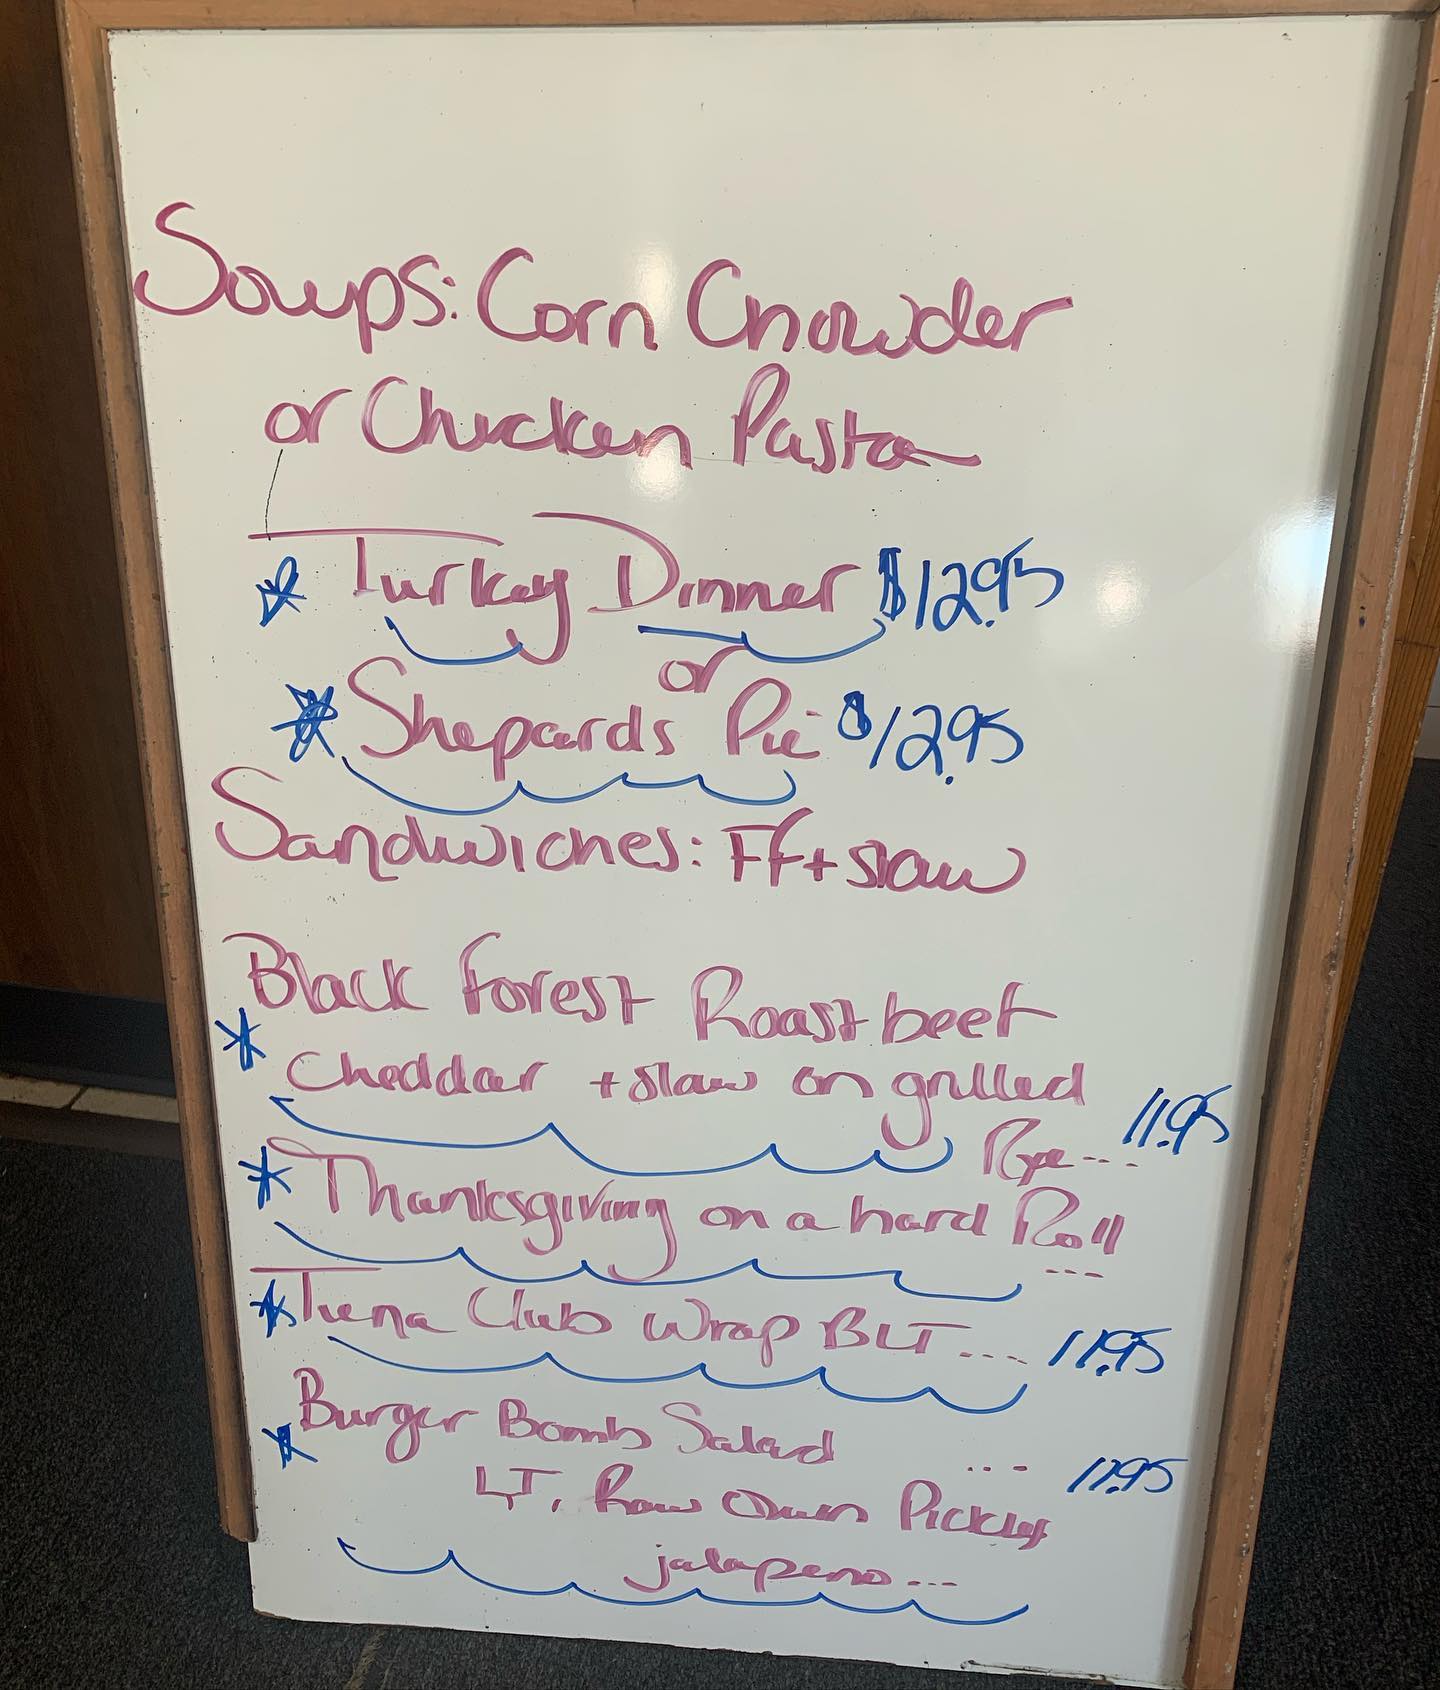 Soups: Corn Chowder
or Chicken Pasta
Turkey Dinner $12.95
or
Shepards Pie $12.95
Sandwiches: FF + slaw
Black Forest Roast beef
Cheddar + slaw on grilled
Rye --- 11.95
Thanksgiving on a hard Roll
---
Tuna Club Wrap BLT ... 11.95
Burger Bomb Salad ... 11.95
LT, Raw Onion Pickles
jalapeno ...